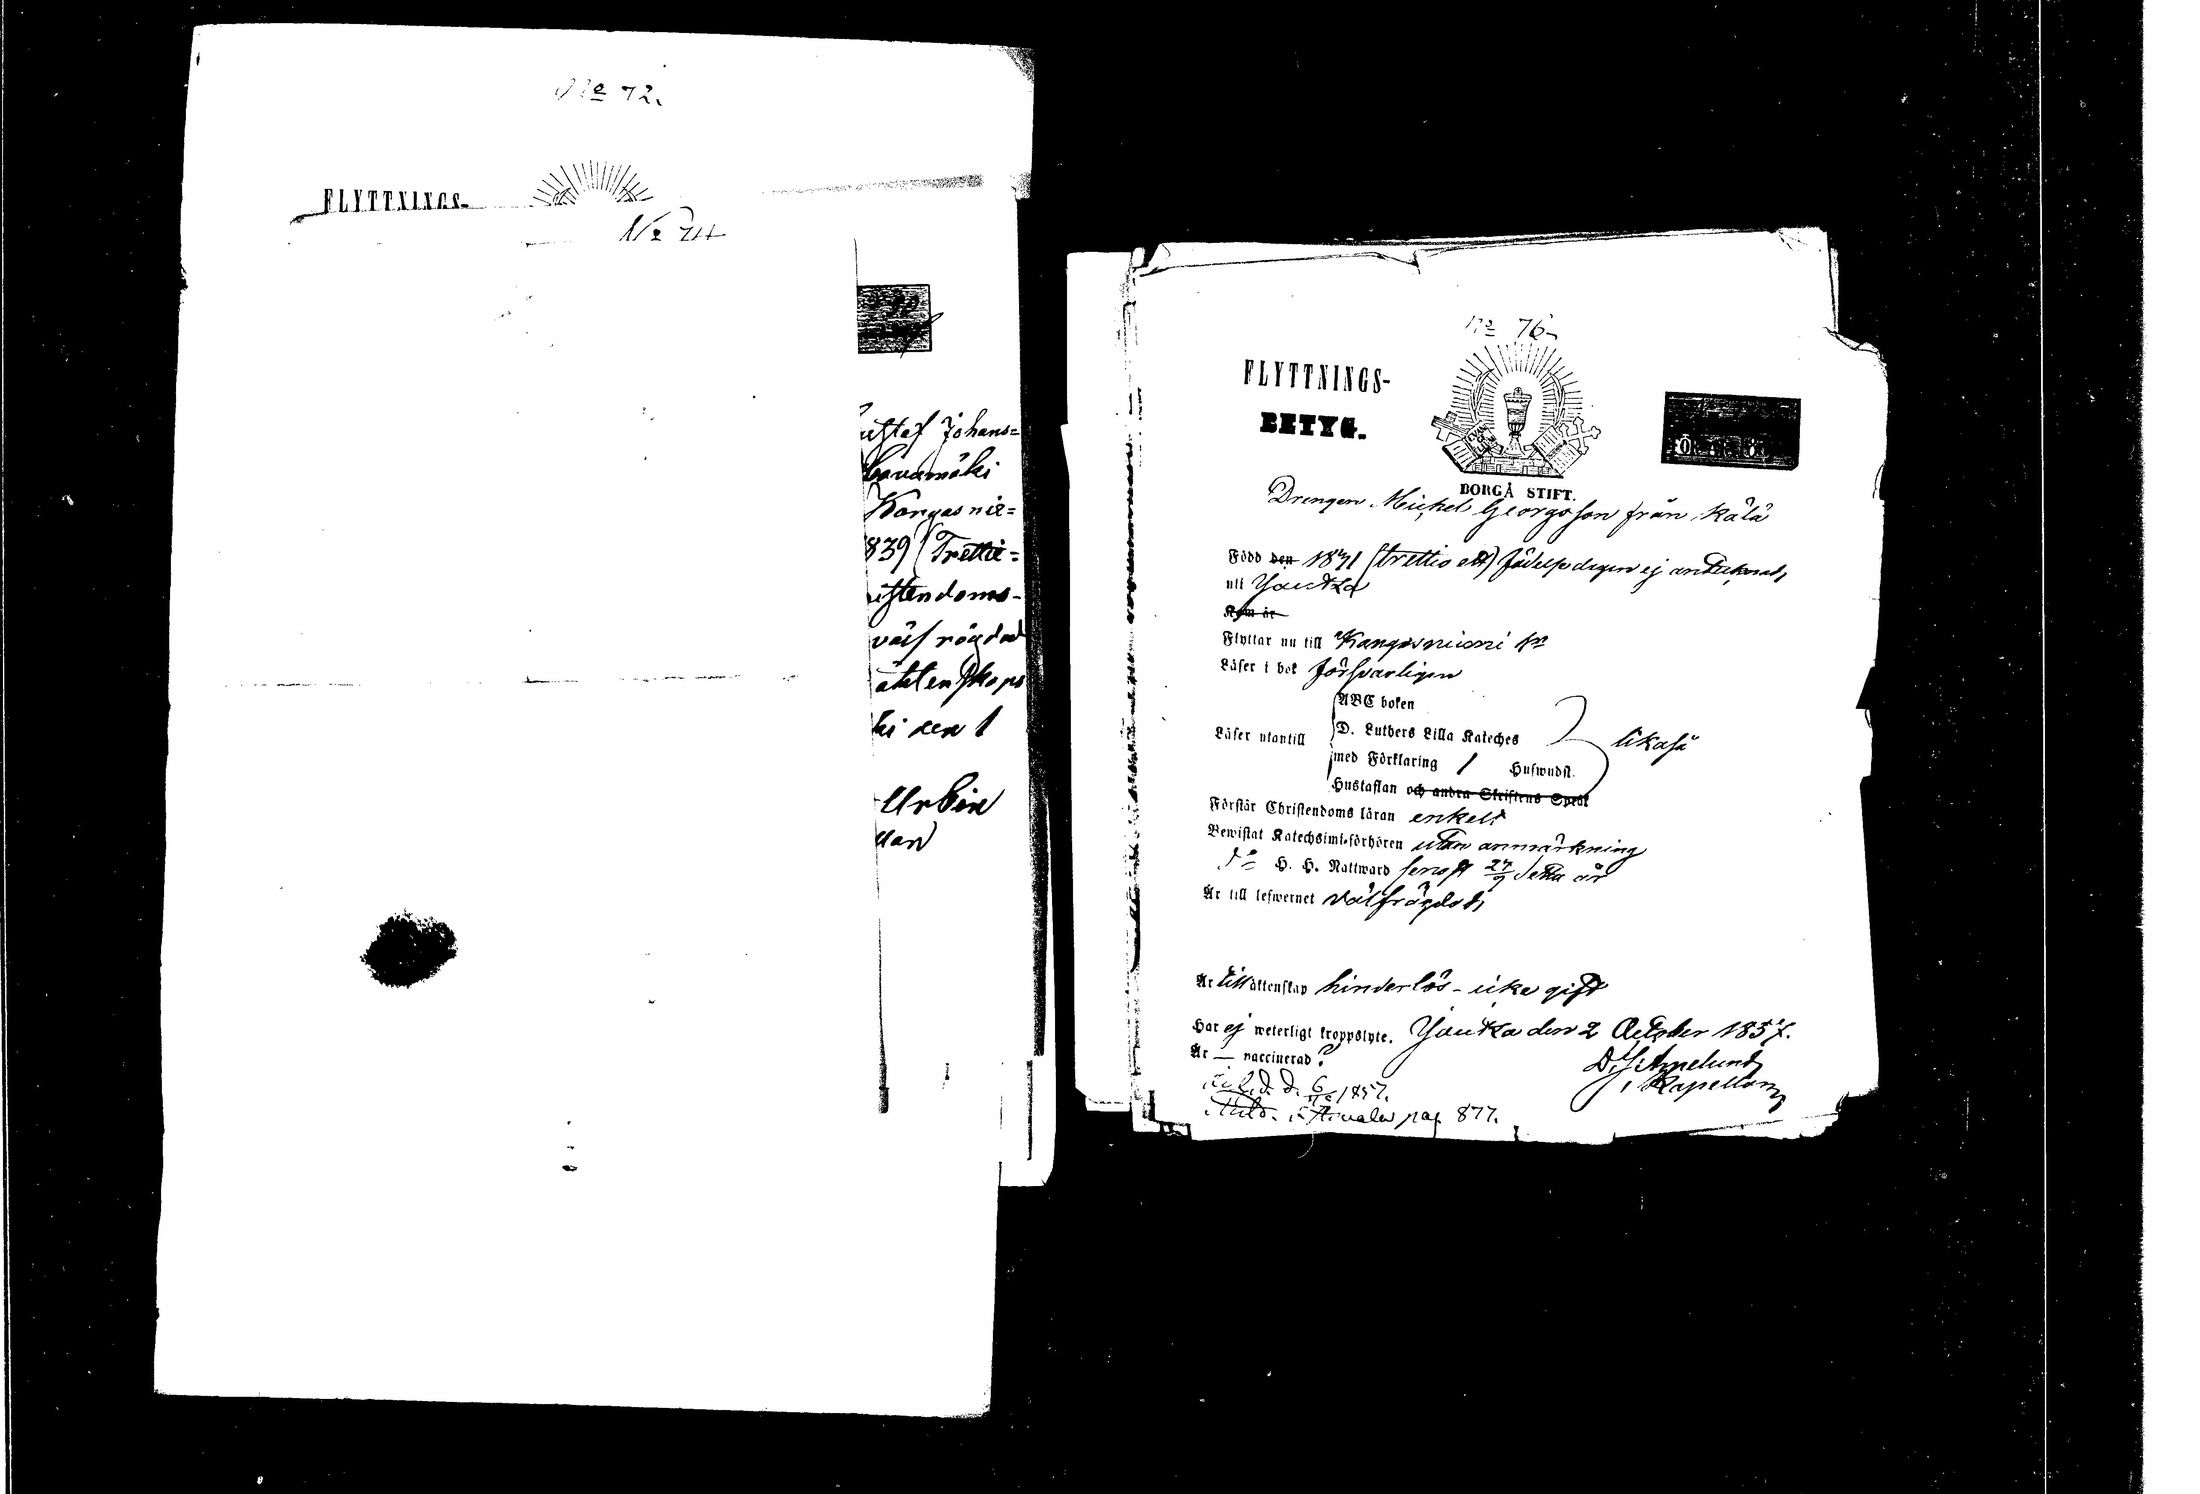 No 72.
FLYTTNINGS-
No 74
ustaf Johans=
Kangasnie=
839 (Trettie=
istendoms-
väl frägdad
äktenskaps
ki den 1
Urbin
No 76
FLYTTNINGS-
BETYG.
BORGÅ STIFT.
Drengen Michel Georgsson från Kälä
Född den (trettio ett) födelsedagen ej antecknad,
uti Joutsa
Kom år
Flyttar nu till Kangasniemi
Läser i bok försvarligen
ABC boken
Läser utantill D. Luthers Lilla Kateches likaså
med Förklaring / Huswudst.
Hustaflan och andra Skriftens Språk
Förstår Christendoms läran enkelt
Bewistat Katechsimi-förhören utan anmärkning
Do H. H. Nattward senast 27/9 detta år
Är till lefwernet välfrägdad,
Är till äktenskap hinderlös - icke gift
Har ej weterligt kroppslyte. Joutsa den 2 October 1857.
Är — vaccinerad?
Kapellan
1857.
pag. 877.